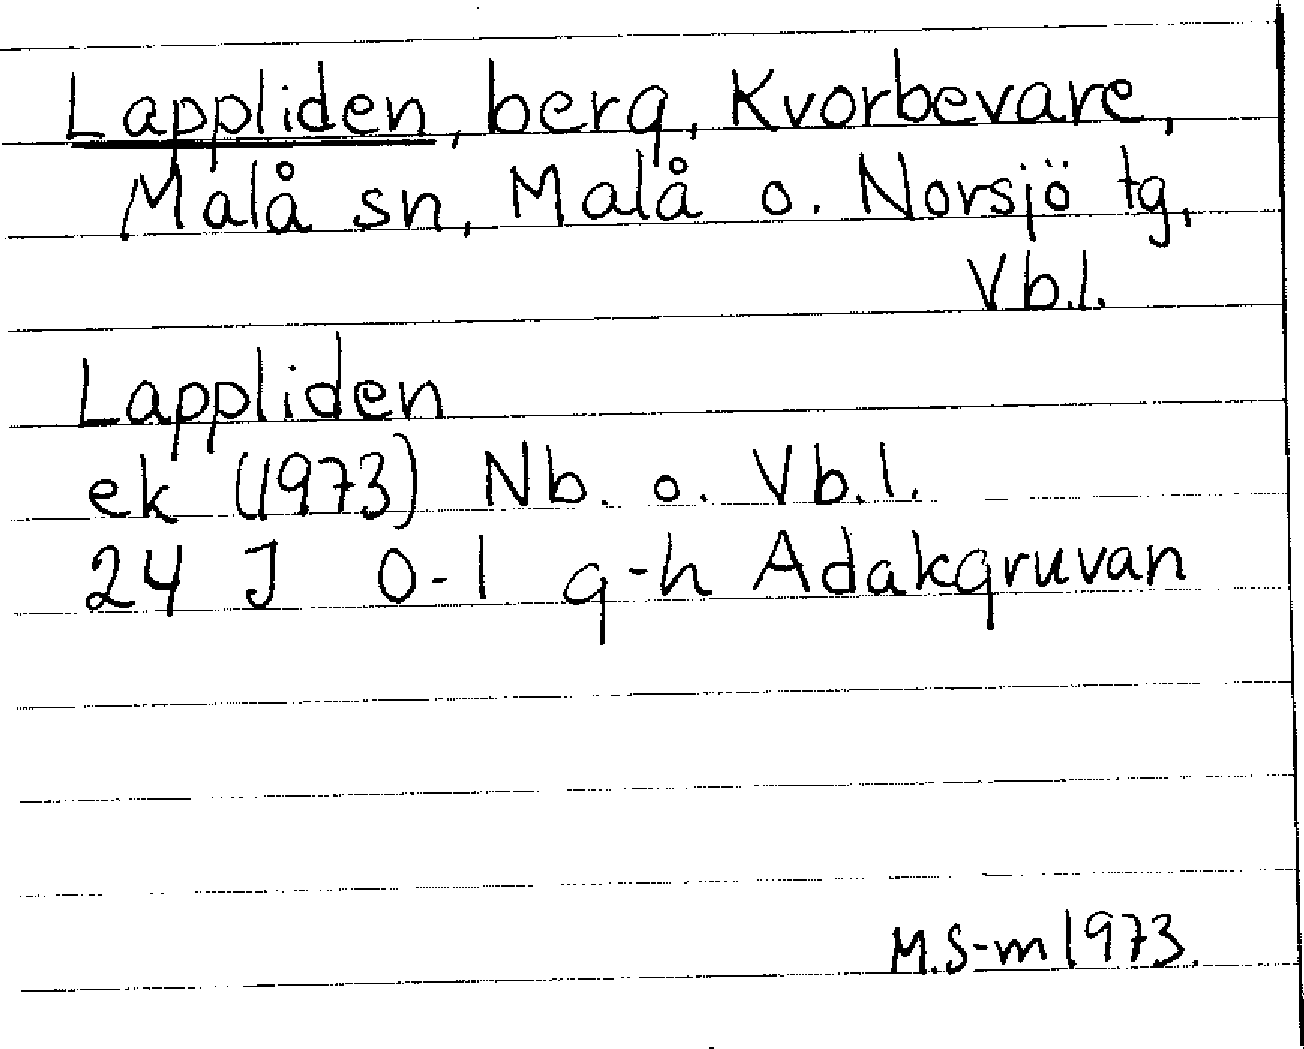 Lappliden, berg, Kvorbevare,
Malå sn, Malå o. Norsjö tg,
Vb.l.
Lappliden
ek (1973) Nb. o. Vb.l.
24 J 0-1 g-h Adakgruvan
M.S-m 1973.